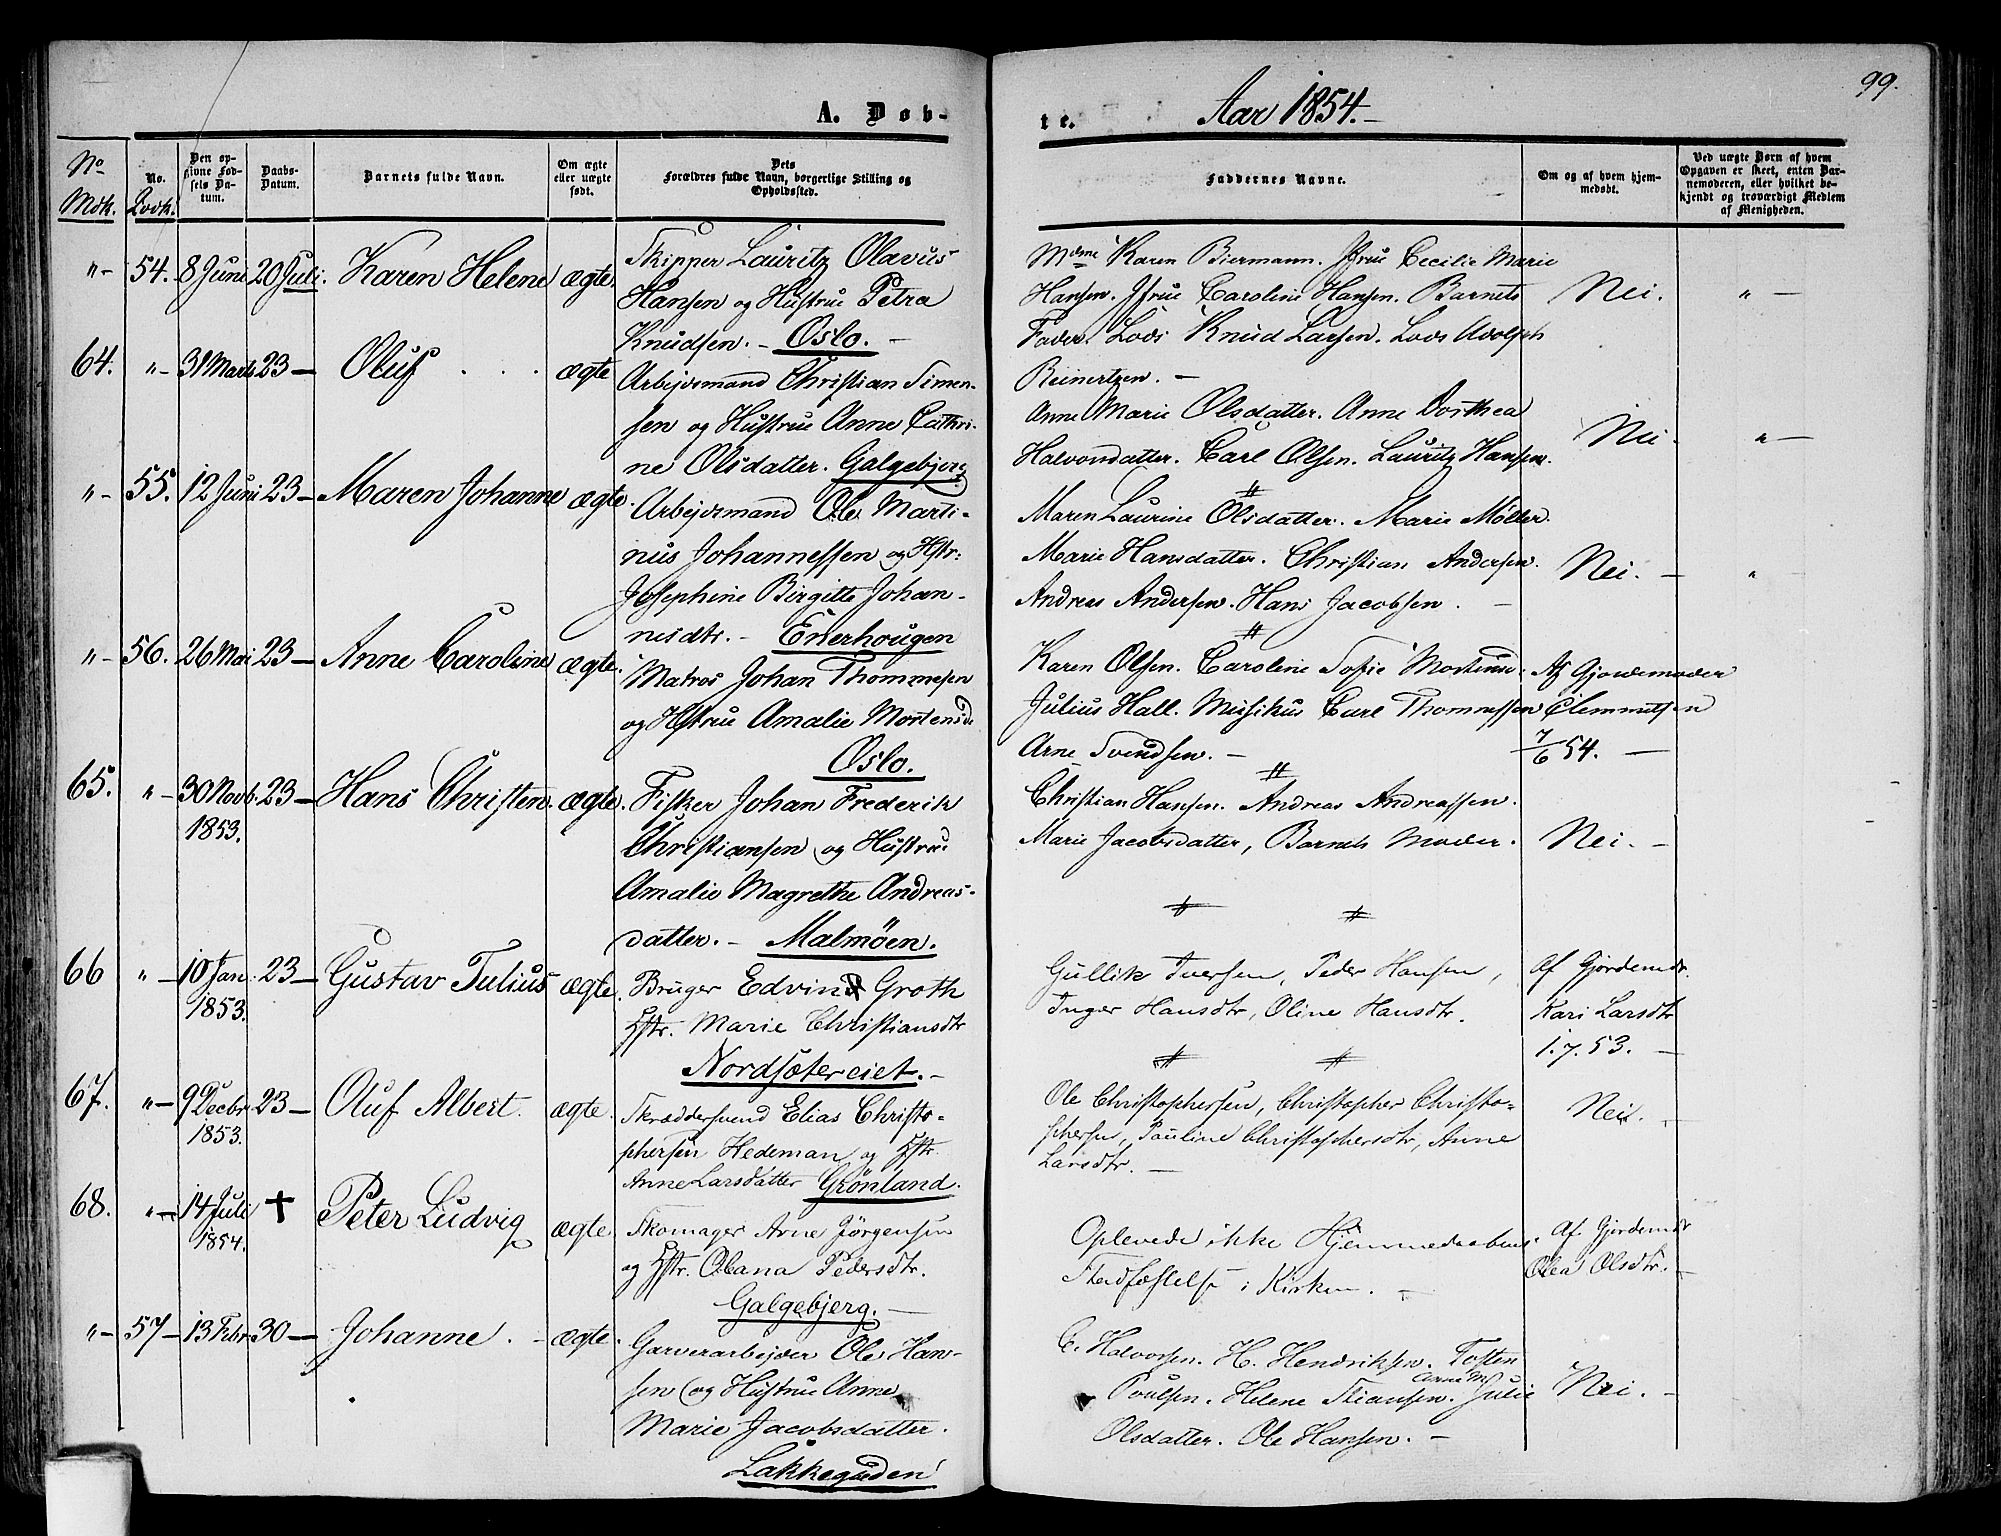 A. Døb-
te.
Aar 1854.-
99.
No Mdk.
No. Qvdk.
Den opgivne Fødsels Datum.
Daabs-Datum.
Barnets fulde Navn.
Om ægte eller uægte født.
Dets Forældres fulde Navn, borgerlige Stilling og Opholdssted.
Faddernes Navne.
Om og af hvem hjemmedøbt.
Ved uægte Børn af hvem Opgaven er skeet, enten Barnemoderen, eller hvilket bekjendt og troværdigt Medlem af Menigheden.
"- 54. 8 Juni 20 Juli. Karen Helene ægte.
Skipper Lauritz Olavus
Hansen og Hustrue Petra
Knudsen. - Oslo. -
Mdme Karen Biermann. Jfrue Cecilie Marie
Hansen. Jfrue Caroline Hansen. Barnets
Fader. Lods Knud Larsen. Lods Adolph
Reinertzen. -
Nei. " -
64. "- 31 Marts 23 - Oluf . . . ægte
Arbejdsmand Christian Simen-
sen og Hustrue Anne Cathri-
ne Olsdatter. Galgebjerg
Anne Marie Olsdatter. Anne Dorthea
Halvorsdatter. Carl Olsen. Lauritz Hansen.
Nei. " -
"- 55. 12 Juni 23 - Maren Johanne ægte.
Arbejdsmand Ole Marti-
nus Johannessen og Hstr:
Josephine Birgitte Johan-
nesdtr. - Enerhougen
Maren Laurine Olsdatter. Marie Møller.
Marie Hansdatter. Christian Andersen.
Andreas Andersen. Hans Jacobsen. -
Nei. - " -
"- 56. 26 Mai 23 - Anne Caroline ægte.
Matros Johan Thommesen
og Hstrue Amalie Mortensd
Oslo.
Karen Olsen. Caroline Sofie Mortensd.
Julius Hall. Musikus Carl Thommessen
Arne Svendsen. -
Af Gjordemoder
Clemmetsen
7/6 54. -
65. "- 30 Novb. 1853. 23 - Hans Christen. ægte.
Fisker Johan Frederik
Christiansen og Hustrue
Amalie Magrethe Andreas-
datter. - Malmøen.
Christian Hansen. Andreas Andreassen.
Marie Jacobsdatter, Barnets Moder.
Nei. -
66 "- 10 Jan. 1853. 23 - Gustav Julius ægte.
Bruger Edvin Groth
Hstr. Marie Christiansdtr
Nordsætereiet. -
Gullik Iversen, Peder Hansen,
Inger Hansdtr, Oline Hansdtr.
Af Gjordemdr.
Kari Larsdtr
1.7.53. -
67. "- 9 Decbr 1853. 23 - Oluf Albert. ægte.
Skræddersvend Elias Christo-
phersen Hedeman og Hstr.
Anne Larsdatter Grönland.
Ole Christophersen, Christopher Christo-
phersen, Pauline Christophersdtr, Anne
Larsdtr. -
Nei. -
68. "- 14 Juli 1854. † Peter Ludvig ægte.
Skomager Arne Jörgensen
og Hstr. Olana Pedersdtr.
Galgebjerg. -
Oplevede ikke Hjemmedaabens
Stadfæstelse i Kirken. -
Af Gjordemdr
Olea Olsdtr. -
"- 57 - 13 Febr. 30 - Johanne . - ægte.
Garverarbejder Ole Han-
sen og Hustrue Anne
Marie Jacobsdatter.
Lakkegaden
C. Halvorsen. H. Hendriksen. Tosten
Poulsen. Helene Stiansen. Julie
Olsdatter. Ole Hansen. -
Nei. -